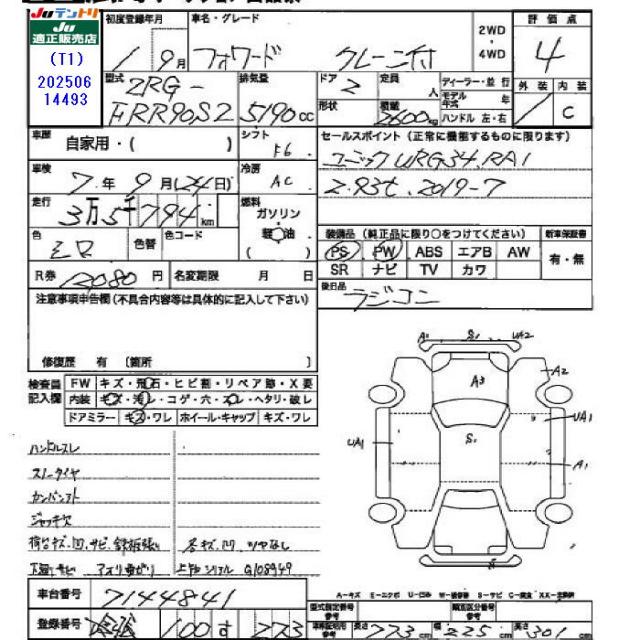 Juテントリ
Ju
適正販売店
(T1)
202506
14493
初度登録年月
1 年 9 月
車名・グレード
フォワード クレーン付
2WD
4WD
評価点
4
型式
2RG-
FRR90S2
排気量
5190 cc
ドア
2
定員
人
形状
積載
2400 kg
ディーラー・並行
モデル年式 年
ハンドル 左・右
外装 内装
C
車歴
自家用・( )
シフト
F6
セールスポイント (正常に機能するものに限ります)
ユニック URG34.RA1
2.93t. 2019-7
車検
7 年 9 月 (24日)
冷房
AC
走行
3万5千794 km
燃料
ガソリン
軽油
( )
色
シロ
色替
色コード
装備品 (純正品に限り○をつけてください)
新車保証書
PS PW ABS エアB AW
SR ナビ TV カワ
有・無
R券
12080 円
名変期限 月 日
後日品
ラジコン
注意事項申告欄 (不具合内容等は具体的に記入して下さい)
修復歴 有 〔箇所 〕
検査員記入欄
FW キズ・飛石・ヒビ割・リペア跡・X要
内装 キズ・汚レ・コゲ・穴・スレ・ヘタリ・破レ
ドアミラー キズ・ワレ ホイール・キャップ キズ・ワレ
A1 S1 UA2
A3
A2
UA1
S1
UA1
A1
S1
ハンドルスレ
スノータイヤ
ジャッキ欠
荷台キズ.凹.サビ.鉄板張り
各キズ.凹 ツヤなし
下廻りサビ
アオリ曲がり
上物シリアル G108949
A-キズ E-エクボ U-凹み W-補修跡 S-サビ C-腐食 XX-交換済
車台番号
7144841
型式指定番号 参考
類別区分番号 参考
登録番号
100 す 273
車検証記載 参考
長さ 773 cm
幅 225 cm
高さ 301 cm